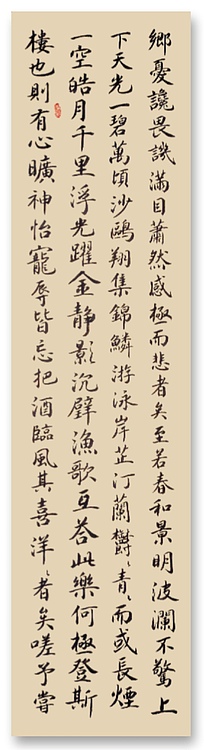 鄉憂讒畏譏滿目蕭然感極而悲者矣至若春和景明波瀾不驚上
下天光一碧萬頃沙鷗翔集錦鱗游泳岸芷汀蘭鬱〻青〻而或長煙
一空皓月千里浮光躍金静影沉璧漁歌互荅此樂何極登斯
樓也則有心曠神怡寵辱皆忘把酒臨風其喜洋〻者矣嗟予嘗